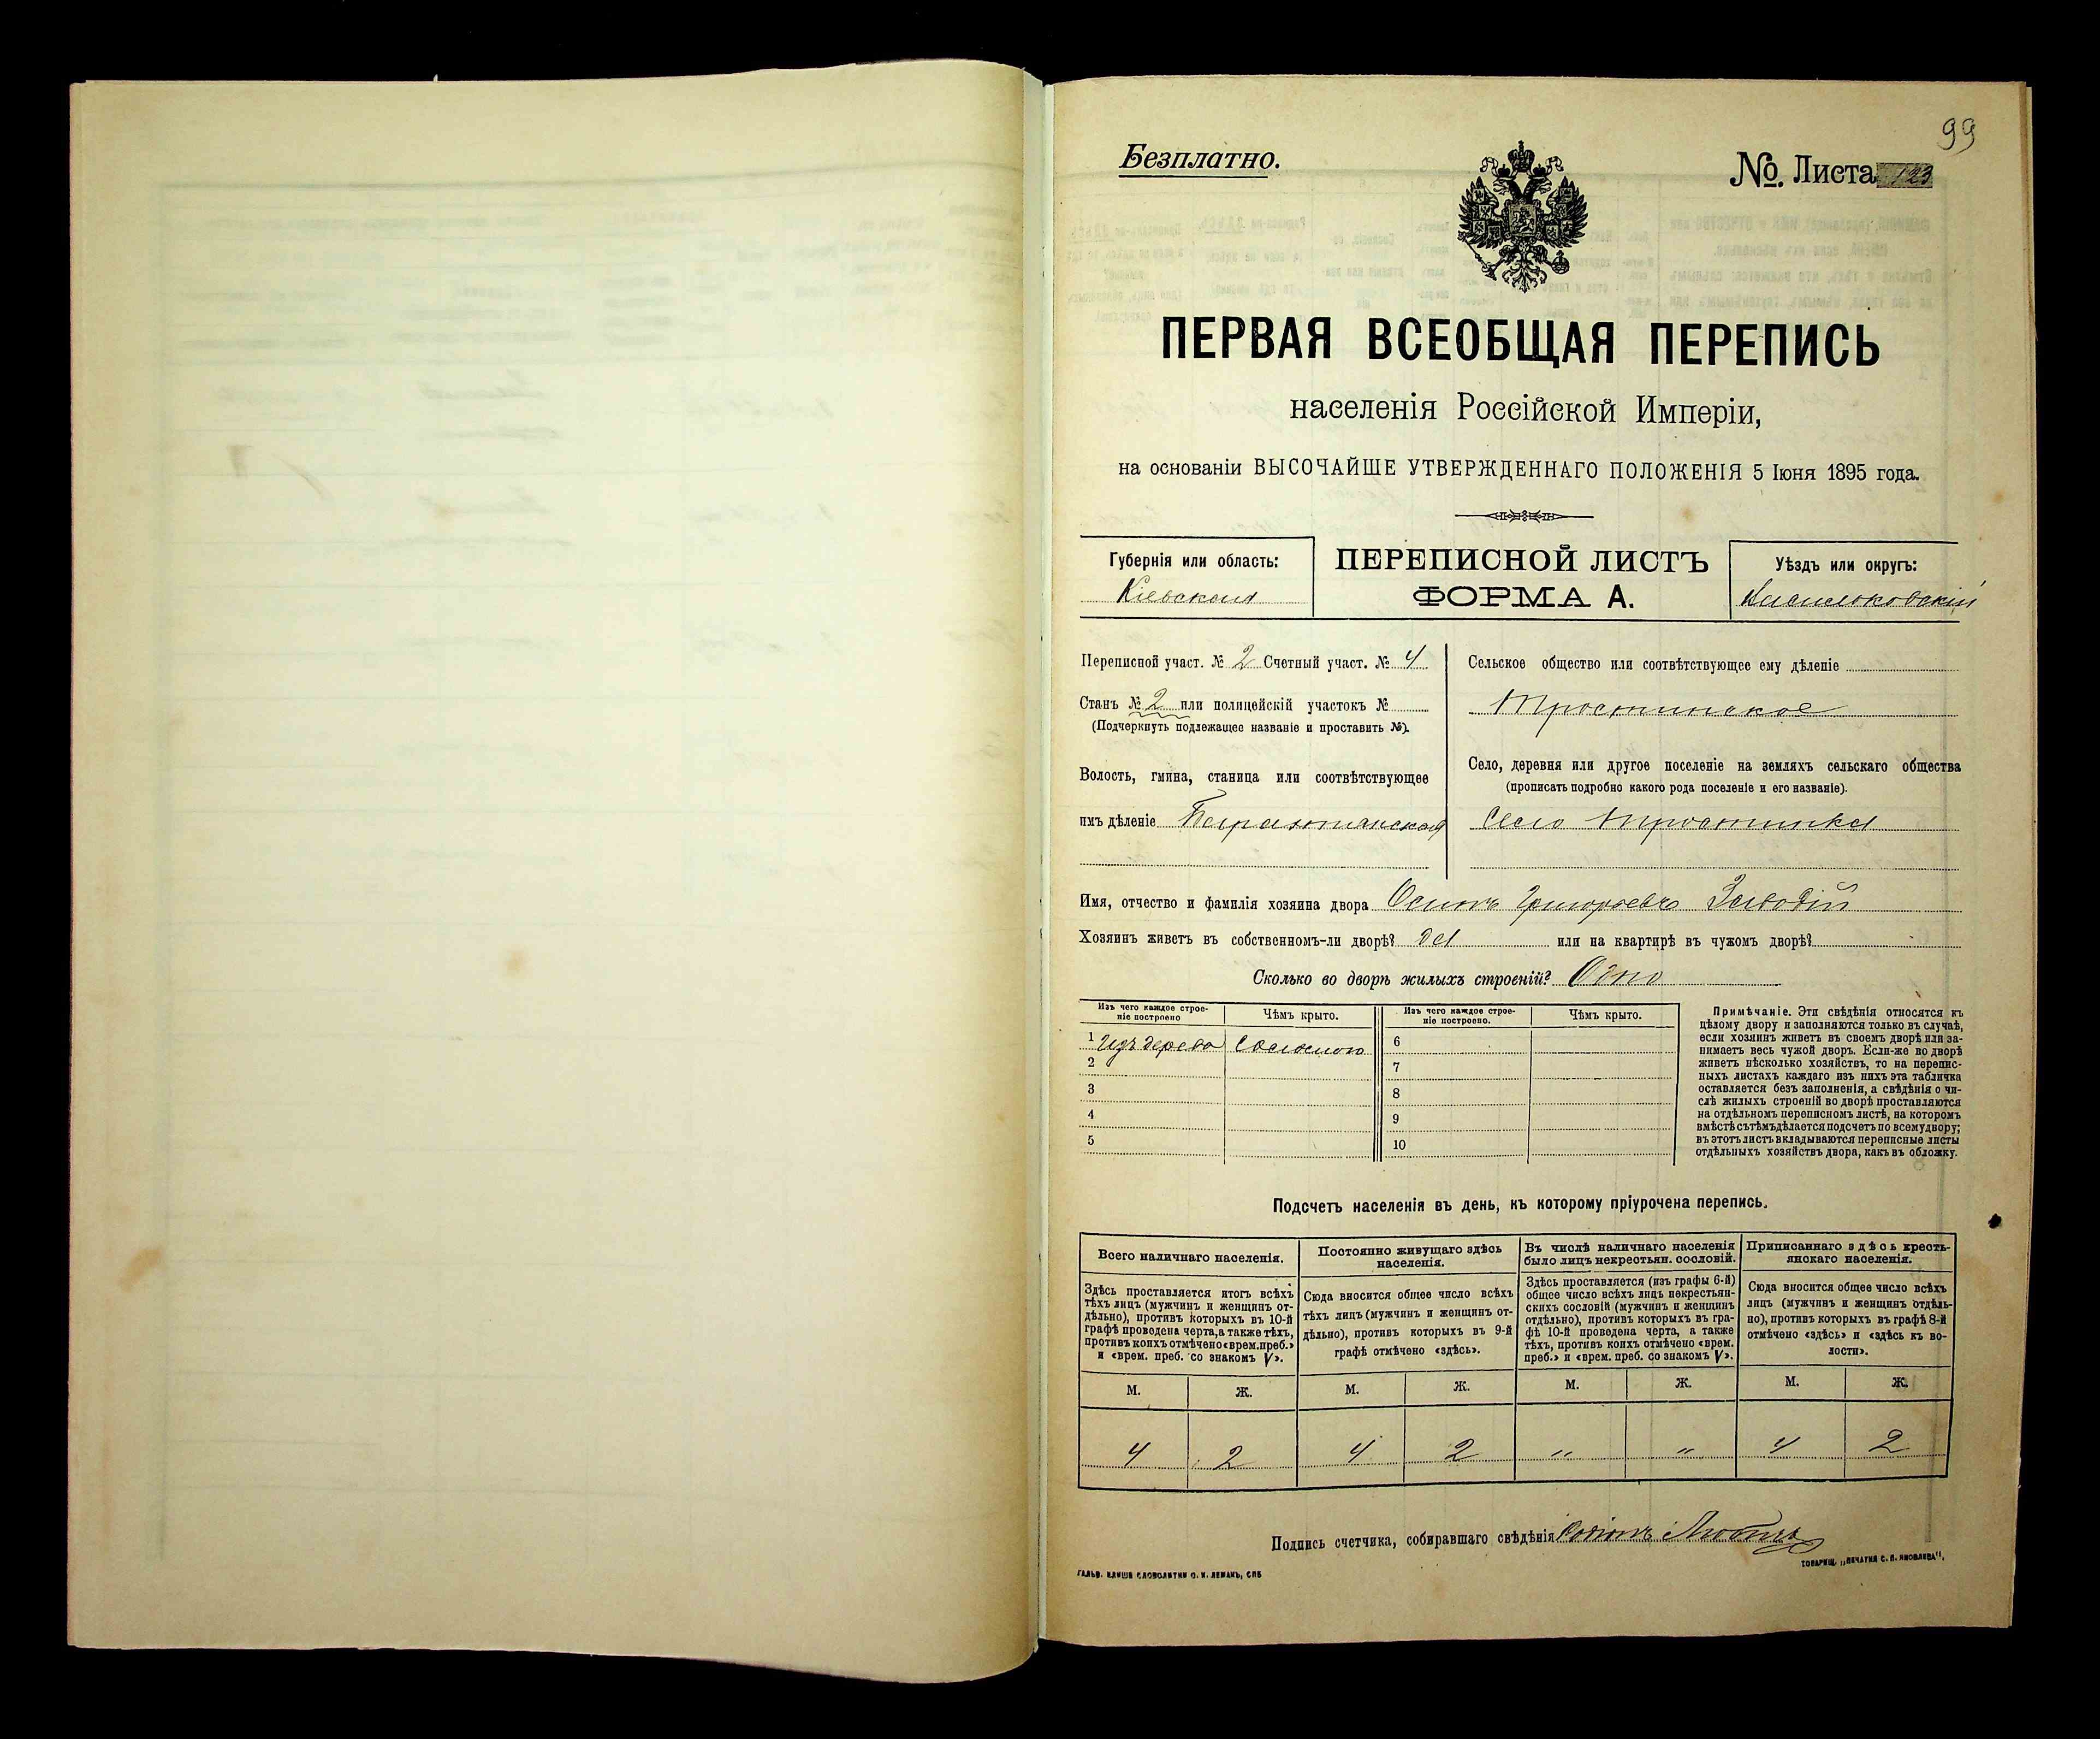 99
Безплатно.
№. Листа 123
ПЕРВАЯ ВСЕОБЩАЯ ПЕРЕПИСЬ
населенія Россійской Имперіи,
на основаніи ВЫСОЧАЙШЕ УТВЕРЖДЕННАГО ПОЛОЖЕНІЯ 5 Іюня 1895 года.
Губернія или область:
Кіевская
ПЕРЕПИСНОЙ ЛИСТЪ
ФОРМА А.
Уѣздъ или округъ:
Васильковскій
Переписной участ. № 2 Счетный участ. № 4
Станъ № 2 или полицейскій участокъ №
(Подчеркнуть подлежащее названіе и проставить №).
Волость, гмина, станица или соотвѣтствующее
имъ дѣленіе
Сельское общество или соотвѣтствующее ему дѣленіе
Тростинское
Село, деревня или другое поселеніе на земляхъ сельскаго общества
(прописать подробно какого рода поселеніе и его названіе).
Село Тростинка
Имя, отчество и фамилія хозяина двора Осипъ Григорьевъ Заводій
Хозяинъ живетъ въ собственномъ-ли дворѣ? да или на квартирѣ въ чужомъ дворѣ?
Сколько во дворѣ жилыхъ строеній? Одно
Изъ чего каждое строе-
ніе построено
Чѣмъ крыто.
Изъ чего каждое строе-
ніе построено.
Чѣмъ крыто.
1 Изъ дерева Соломою
2
3
4
5
6
7
8
9
10
Примѣчаніе. Эти свѣдѣнія относятся къ
цѣлому двору и заполняются только въ случаѣ,
если хозяинъ живетъ въ своемъ дворѣ или за-
нимаетъ весь чужой дворъ. Если-же во дворѣ
живетъ нѣсколько хозяйствъ, то на перепис-
ныхъ листахъ каждаго изъ нихъ эта табличка
оставляется безъ заполненія, а свѣдѣнія о чи-
слѣ жилыхъ строеній во дворѣ проставляются
на отдѣльномъ переписномъ листѣ, на которомъ
вмѣстѣ съ тѣмъ дѣлается подсчетъ по всему двору;
въ этотъ листъ вкладываются переписные листы
отдѣльныхъ хозяйствъ двора, какъ въ обложку.
Подсчетъ населенія въ день, къ которому пріурочена перепись.
Всего наличнаго населенія.
Здѣсь проставляется итогъ всѣхъ
тѣхъ лицъ (мужчинъ и женщинъ от-
дѣльно), противъ которыхъ въ 10-й
графѣ проведена черта, а также тѣхъ,
противъ коихъ отмѣчено «врем. преб.»
и «врем. преб. со знакомъ V».
Постоянно живущаго здѣсь
населенія.
Сюда вносится общее число всѣхъ
тѣхъ лицъ (мужчинъ и женщинъ от-
дѣльно), противъ которыхъ въ 9-й
графѣ отмѣчено «здѣсь».
Въ числѣ наличнаго населенія
было лицъ некрестьян. сословій.
Здѣсь проставляется (изъ графы 6-й)
общее число всѣхъ лицъ некрестьян-
скихъ сословій (мужчинъ и женщинъ
отдѣльно), противъ которыхъ въ гра-
фѣ 10-й проведена черта, а также
тѣхъ, противъ коихъ отмѣчено «врем.
преб.» и «врем. преб. со знакомъ V».
Приписаннаго здѣсь кресть-
янскаго населенія.
Сюда вносится общее число всѣхъ
лицъ (мужчинъ и женщинъ отдѣль-
но), противъ которыхъ въ графѣ 8-й
отмѣчено «здѣсь» и «здѣсь къ во-
лости».
М. Ж. М. Ж. М. Ж. М. Ж.
4 2 4 2 " " 4 2
Подпись счетчика, собиравшаго свѣдѣнія
ГАЛЬВ. КЛИШЕ СЛОВОЛИТНИ О. И. ЛЕМАНЪ, СПБ
ТОВАРИЩ. „ПЕЧАТНЯ С. П. ЯКОВЛЕВА",